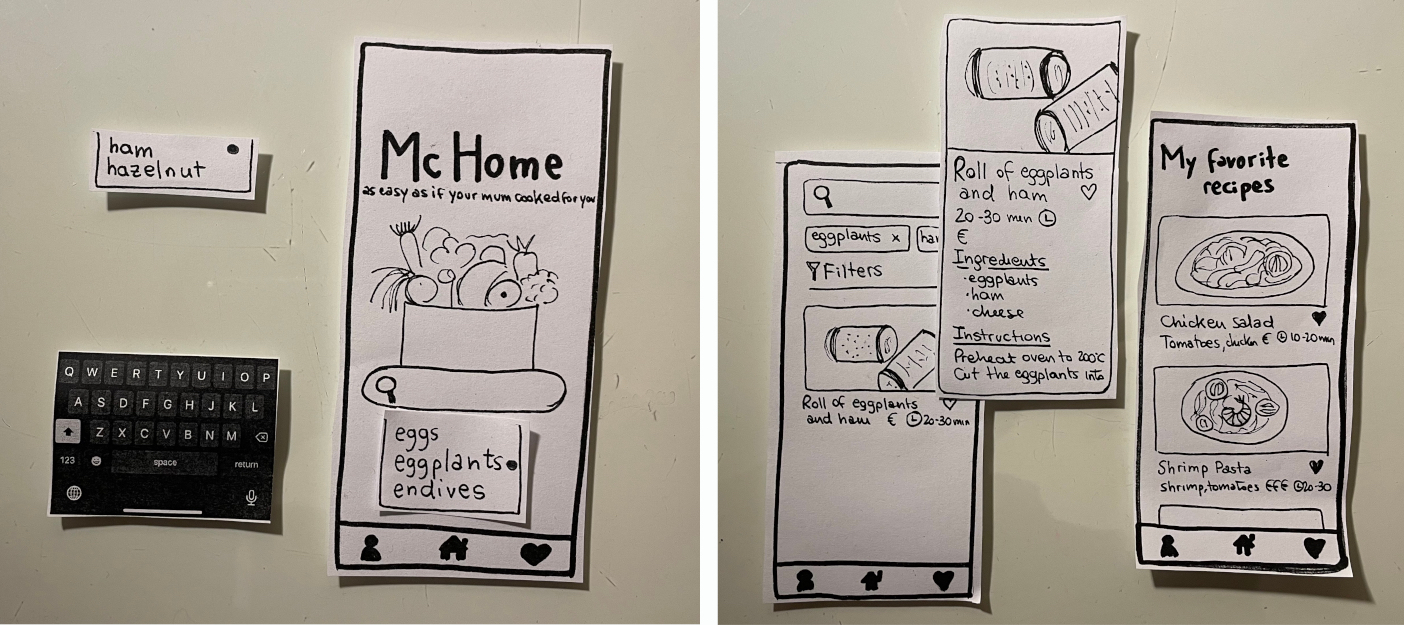 ham
hazelnut
Q W E R T Y U I O P
A S D F G H J K L
Z X C V B N M
123 space return
Mc Home
as easy as if your mum cooked for you
eggs
eggplants
endives
eggplants x
Filters
Roll of eggplants
and ham € 20-30 min
Roll of eggplants
and ham
20-30 min
€
Ingredients
·eggplants
·ham
·cheese
Instructions
Preheat oven to 200°C
Cut the eggplants into
My favorite
recipes
Chicken salad
Tomatoes, chicken € 10-20min
Shrimp Pasta
shrimp, tomatoes €€€ 20-30